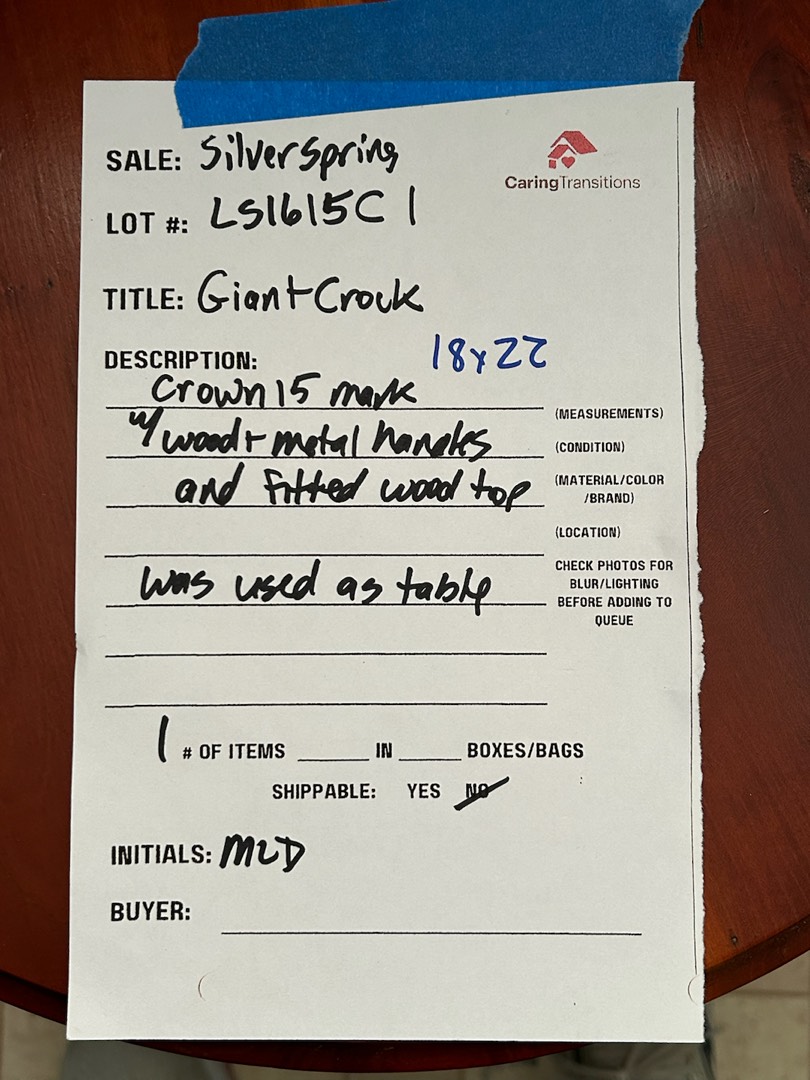 SALE: Silverspring
CaringTransitions
LOT #: LS1615C 1
TITLE: Giant Crock
DESCRIPTION: 18x22
Crown 15 mark
(MEASUREMENTS)
w/ wood + metal handles
(CONDITION)
and fitted wood top
(MATERIAL/COLOR
/BRAND)
(LOCATION)
was used as table
CHECK PHOTOS FOR
BLUR/LIGHTING
BEFORE ADDING TO
QUEUE
1 # OF ITEMS _____ IN _____ BOXES/BAGS
SHIPPABLE: YES NO
INITIALS: MLD
BUYER: